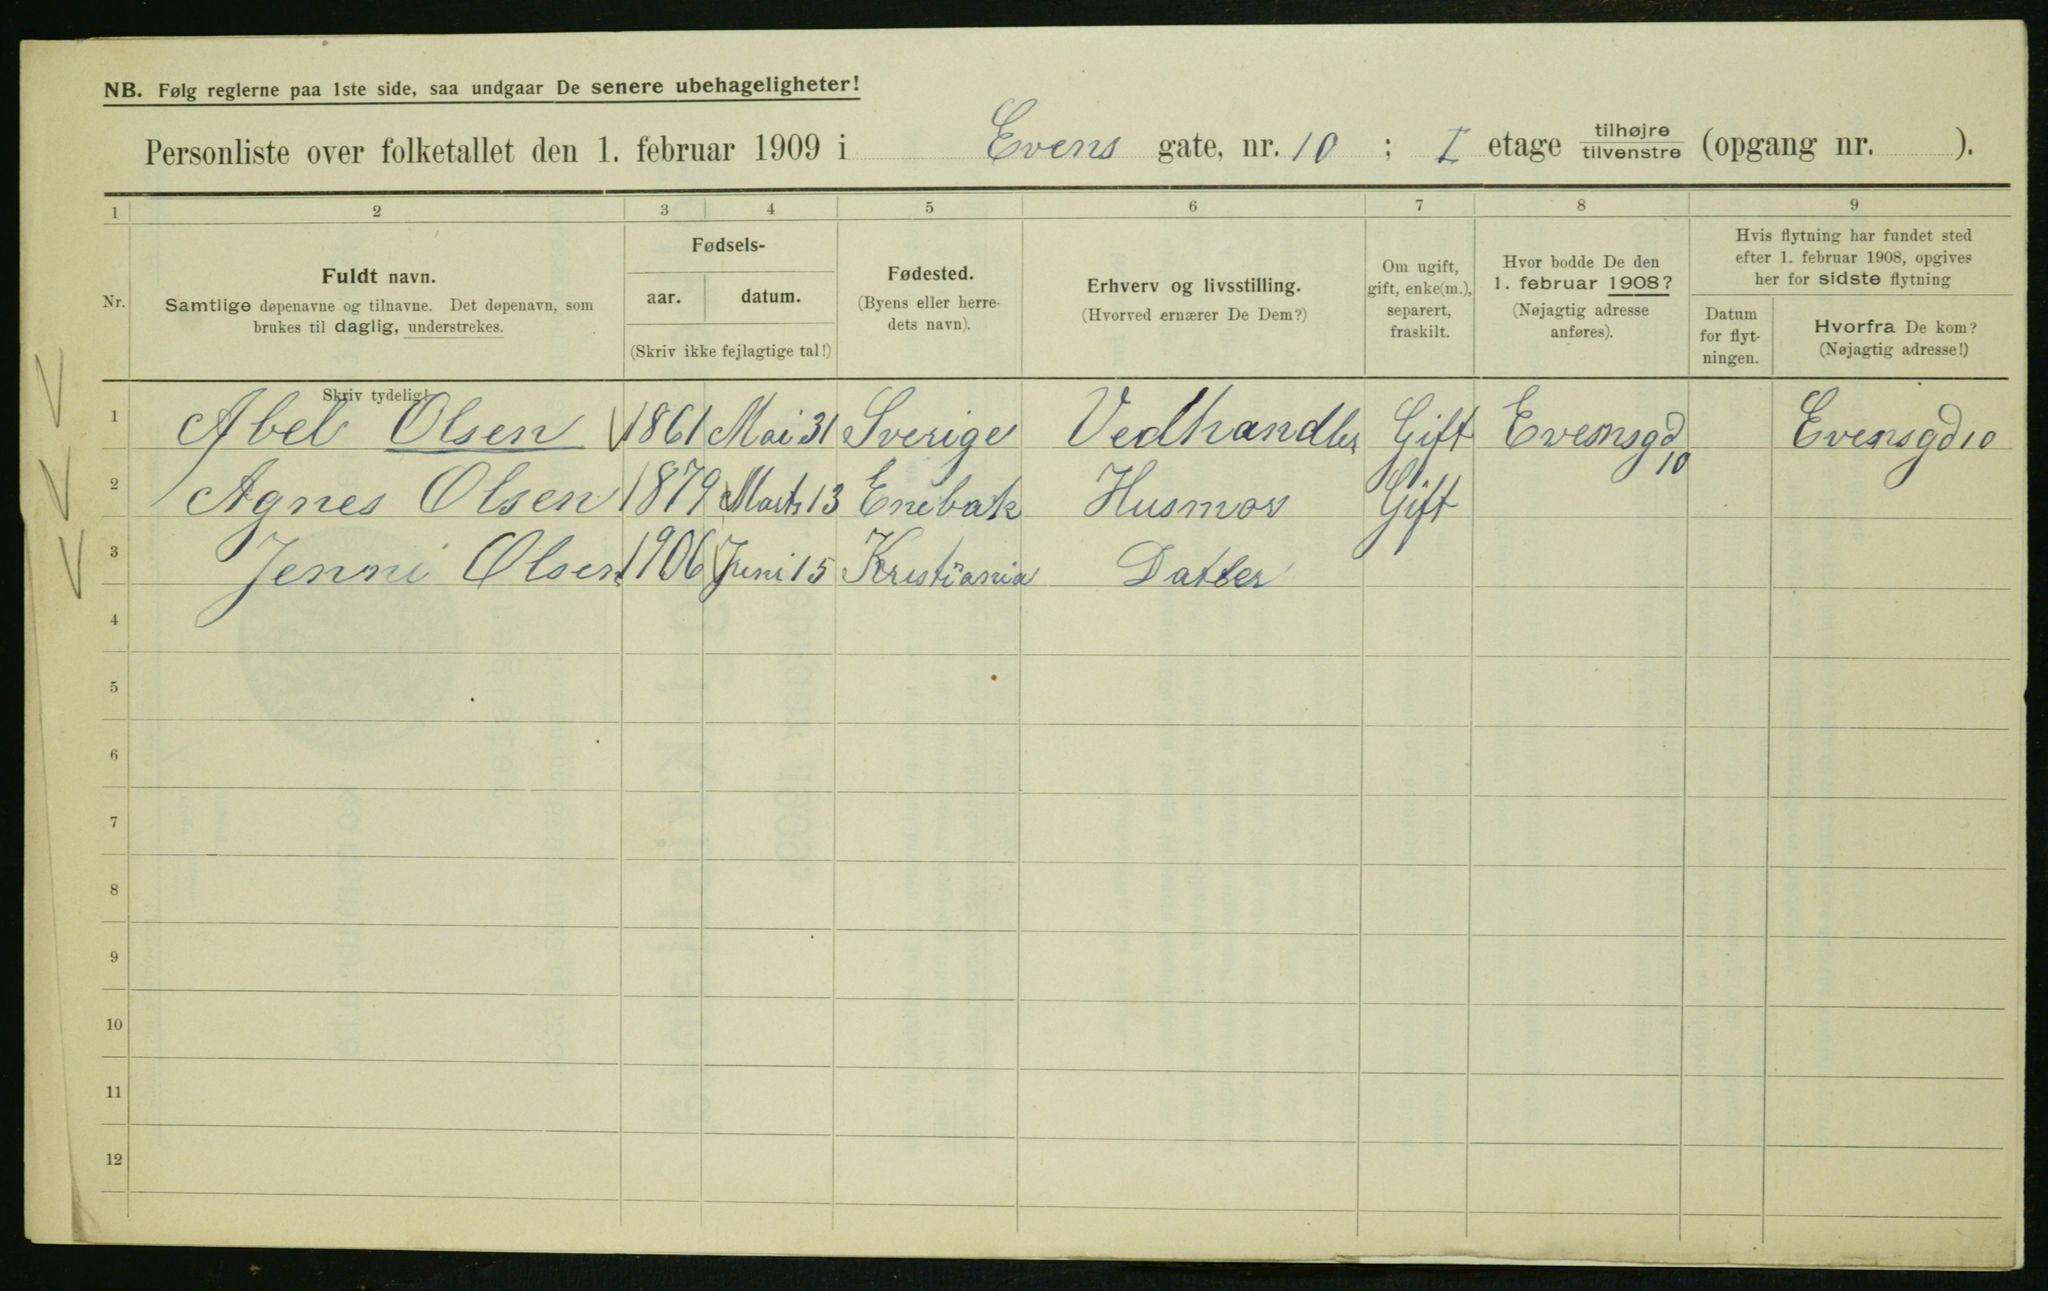 NB. Følg reglerne paa 1ste side, saa undgaar De senere ubehageligheter!
Personliste over folketallet den 1. februar 1909 i Evens gate, nr. 10 ; I etage tilhøjre tilvenstre (opgang nr. ).
1 2 3 4 5 6 7 8 9
Nr.
Fuldt navn.
Samtlige døpenavne og tilnavne. Det døpenavn, som
brukes til daglig, understrekes.
Skriv tydelig!
Fødsels-
aar. datum.
(Skriv ikke fejlagtige tal!)
Fødested.
(Byens eller herre-
dets navn).
Erhverv og livsstilling.
(Hvorved ernærer De Dem?)
Om ugift,
gift, enke(m.),
separert,
fraskilt.
Hvor bodde De den
1. februar 1908?
(Nøjagtig adresse
anføres).
Hvis flytning har fundet sted
efter 1. februar 1908, opgives
her for sidste flytning
Datum
for flyt-
ningen.
Hvorfra De kom?
(Nøjagtig adresse!)
1 Abel Olsen 1861 Mai 31 Sverige Vedhandler Gift Evensgd 10 Evensgd 10
2 Agnes Olsen 1879 Marts 13 Enebak Husmor Gift
3 Jenni Olsen 1906 Juni 15 Kristiania Datter
4
5
6
7
8
9
10
11
12